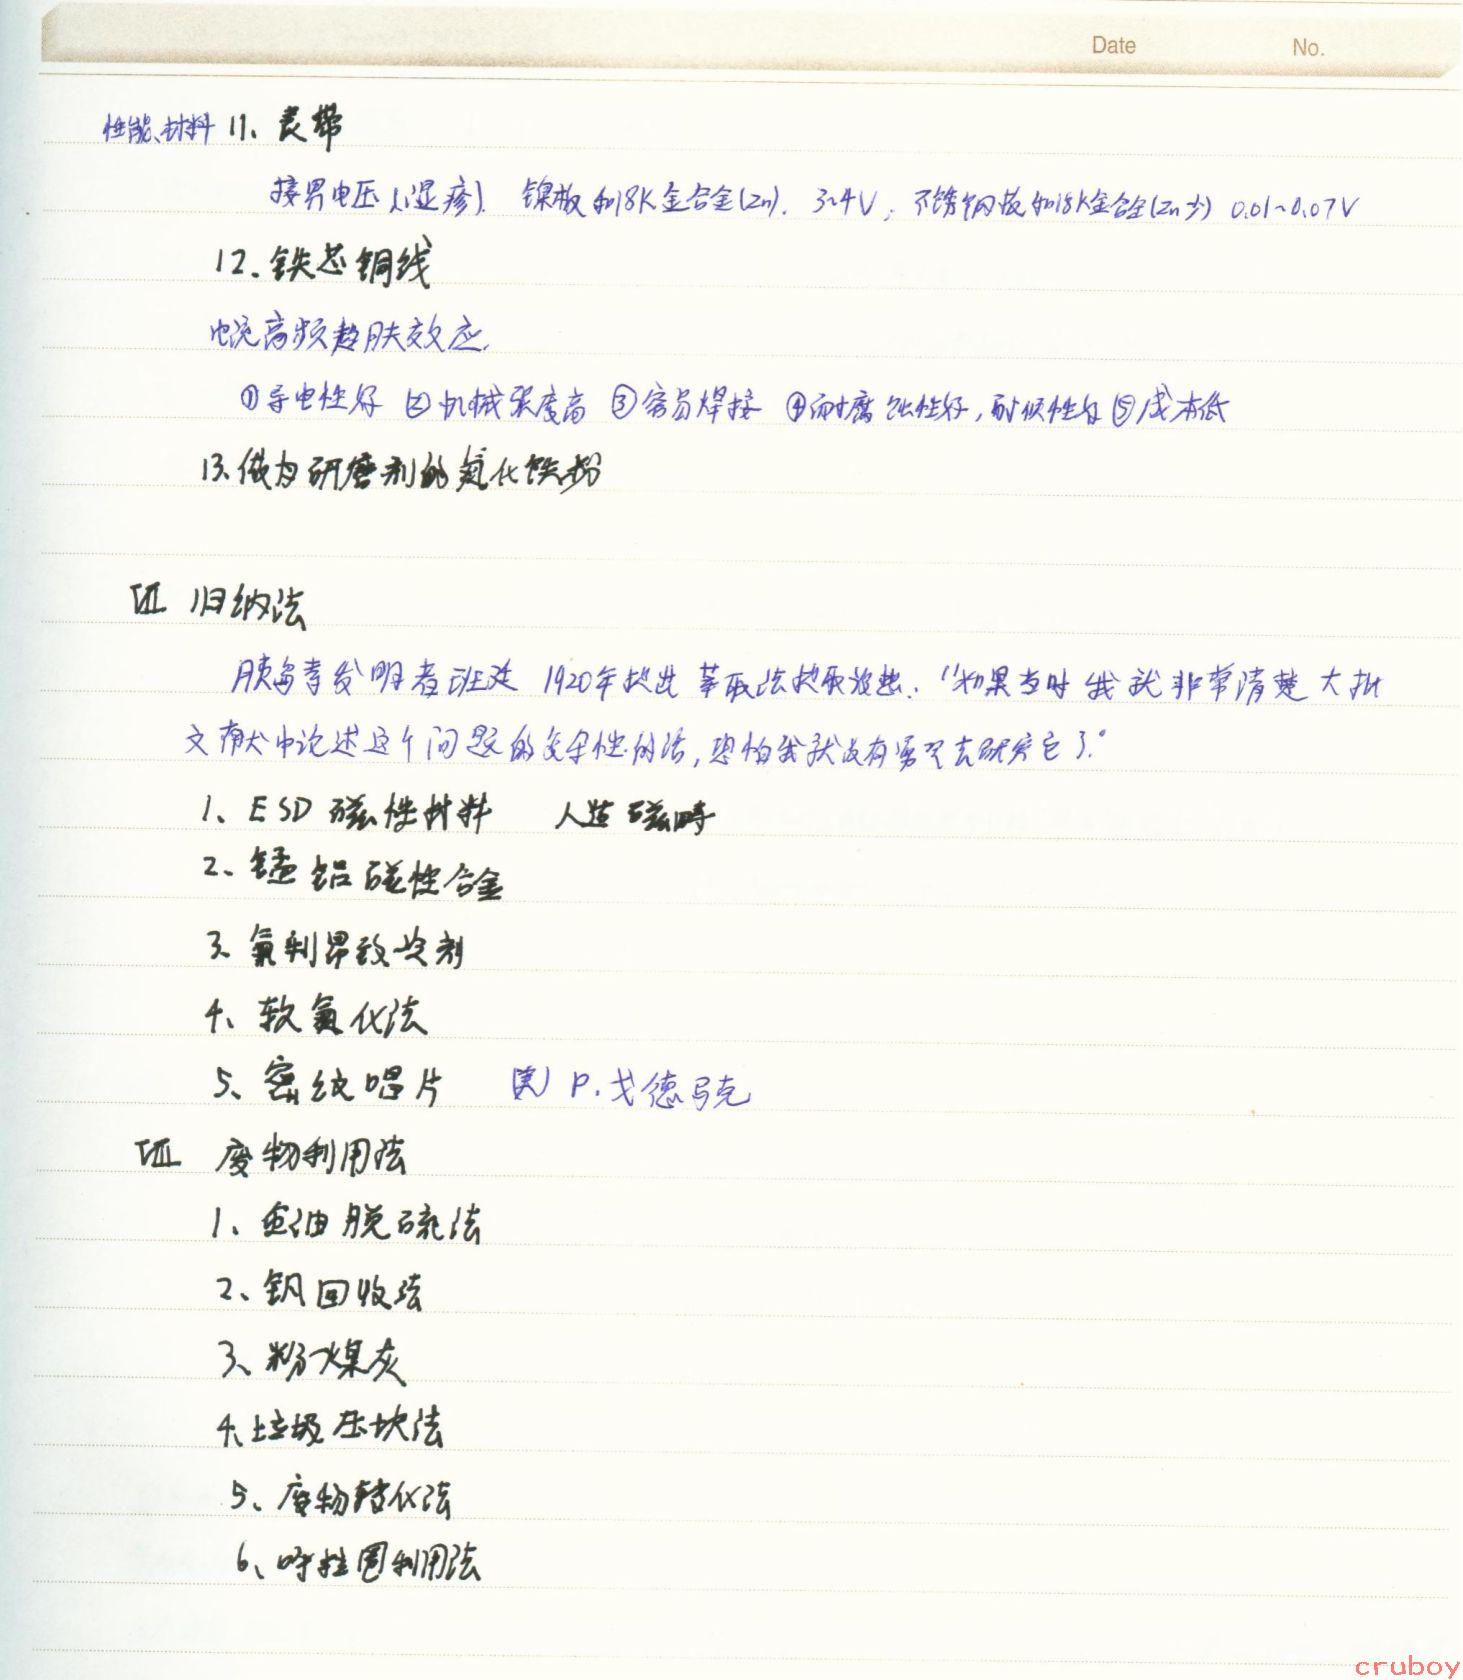 Date No.
性能、材料 11、表带
接界电压(湿疹). 镍板和18K金合金(Zn). 3~4V; 不锈钢板和18K金合金(Zn少) 0.01~0.07V
12.铁芯铜线
电流高频趋肤效应.
①导电性好 ②机械强度高 ③容易焊接 ④耐腐蚀性好,耐候性好 ⑤成本低
13.做为研磨剂的氮化铁粉
VII 归纳法
胰岛素发明者班廷 1920年提出萃取法提取设想. "如果当时我就非常清楚大批
文献中论述这个问题的复杂性的话,恐怕我就没有勇气去研究它了."
1、ESD 磁性材料 人造磁畴
2、锰铝磁性合金
3、氟利昂致冷剂
4、软氮化法
5、密纹唱片 (美) P.戈德马克
VIII 废物利用法
1、重油脱硫法
2、钒回收法
3、粉煤灰
4、垃圾压块法
5、废物转化法
6、利用法
cruboy